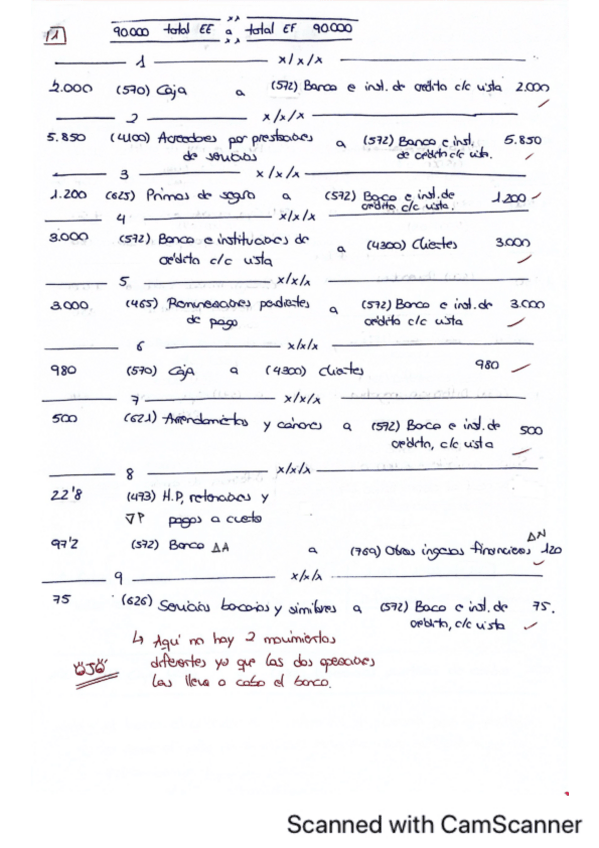 1 90000 total EE a total EF 90000
1 x/x/x
2.000 (570) Caja a (572) Banco e inst. de crédito c/c vista 2.000
2 x/x/x
5.850 (4100) Acreedores por prestaciones a (572) Banco e inst. 5.850
de servicios de crédito c/c vista.
3 x/x/x
1.200 (625) Primas de seguro a (572) Banco e inst. de 1200
crédito c/c vista.
4 x/x/x
3.000 (572) Banco e instituciones de a (4300) Clientes 3.000
crédito c/c vista
5 x/x/x
3.000 (465) Remuneraciones pendientes a (572) Banco e inst. de 3.000
de pago crédito c/c vista
6 x/x/x
980 (570) Caja a (4300) Clientes 980
7 x/x/x
500 (621) Arrendamientos y cánones a (572) Banco e inst. de 500
crédito, c/c vista
8 x/x/x
22'8 (473) H.P, retenciones y
∇P pagos a cuenta
ΔN
97'2 (572) Banco ΔA a (769) Otros ingresos financieros 120
9 x/x/x
75 (626) Servicios bancarios y similares a (572) Banco e inst. de 75.
crédito, c/c vista
↳ Aquí no hay 2 movimientos
OJO diferentes ya que las dos operaciones
las lleva a cabo el banco.
Scanned with CamScanner